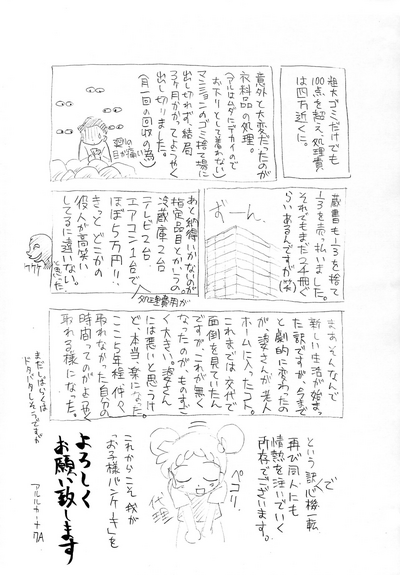 粗大ゴミだけでも
100点を超え、処理費
は四万近くに。
意外と大変だったのが
衣料品の処理。
(アルはムダにデカイので
お下りとして着れない)
マンションのゴミ捨て場に
出し切れず、結局
3ヶ月かかってようやく
出し切りました。
(月一回の回収の為)
目が痛い
蔵書も1/3を捨て
1/3を売っ払いました。
それでもまだ2千冊ぐ
らいあるんですが(汗)
ずーん。
あと納得いかないのが
指定品目とかいうの。
冷蔵庫2台
テレビ2台
エアコン1台で
ほぼ5万円!!
きっとどこかの
役人が高笑い
してるに違いない。
と思った
処理費用が
まあそんなんで
新しい生活が始まっ
た訳ですが、今まで
と劇的に変わったの
が婆さんが老人
ホームに入ったコト。
これまでは交代で
面倒を見ていたん
ですが、これが無く
なったのが、ものすご
く大きい。婆さん
には悪いと思うけ
ど、本当、楽になった。
ここ5年程、中々
取れなかった自分の
時間ってのがようやく
取れる様になった。
まだしばらくは
ドタバタしそうですが
という訳で
心機一転
再び同人にも
情熱を注いでいく
所存でございます。
ペコリ。
代理
これからこそ我が
「お子様パンケーキ」を
よろしく
お願い致します
アルルカーナ7A